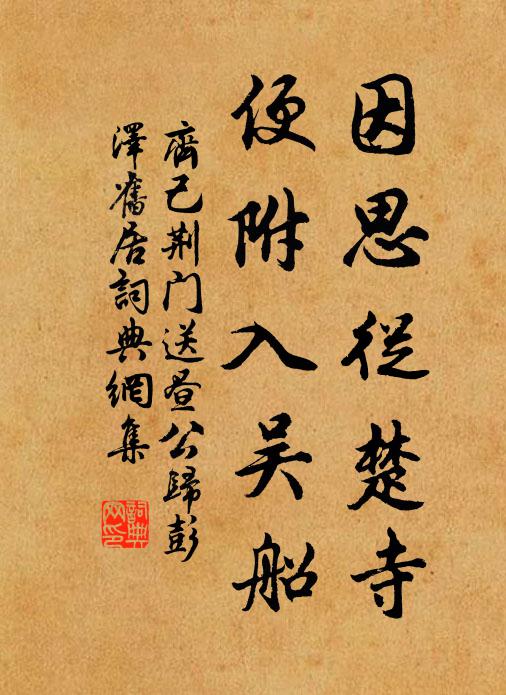 因思從楚寺
便附入吴船
齊己荆门送昼公歸彭
澤舊居詞典網集
詞典网印